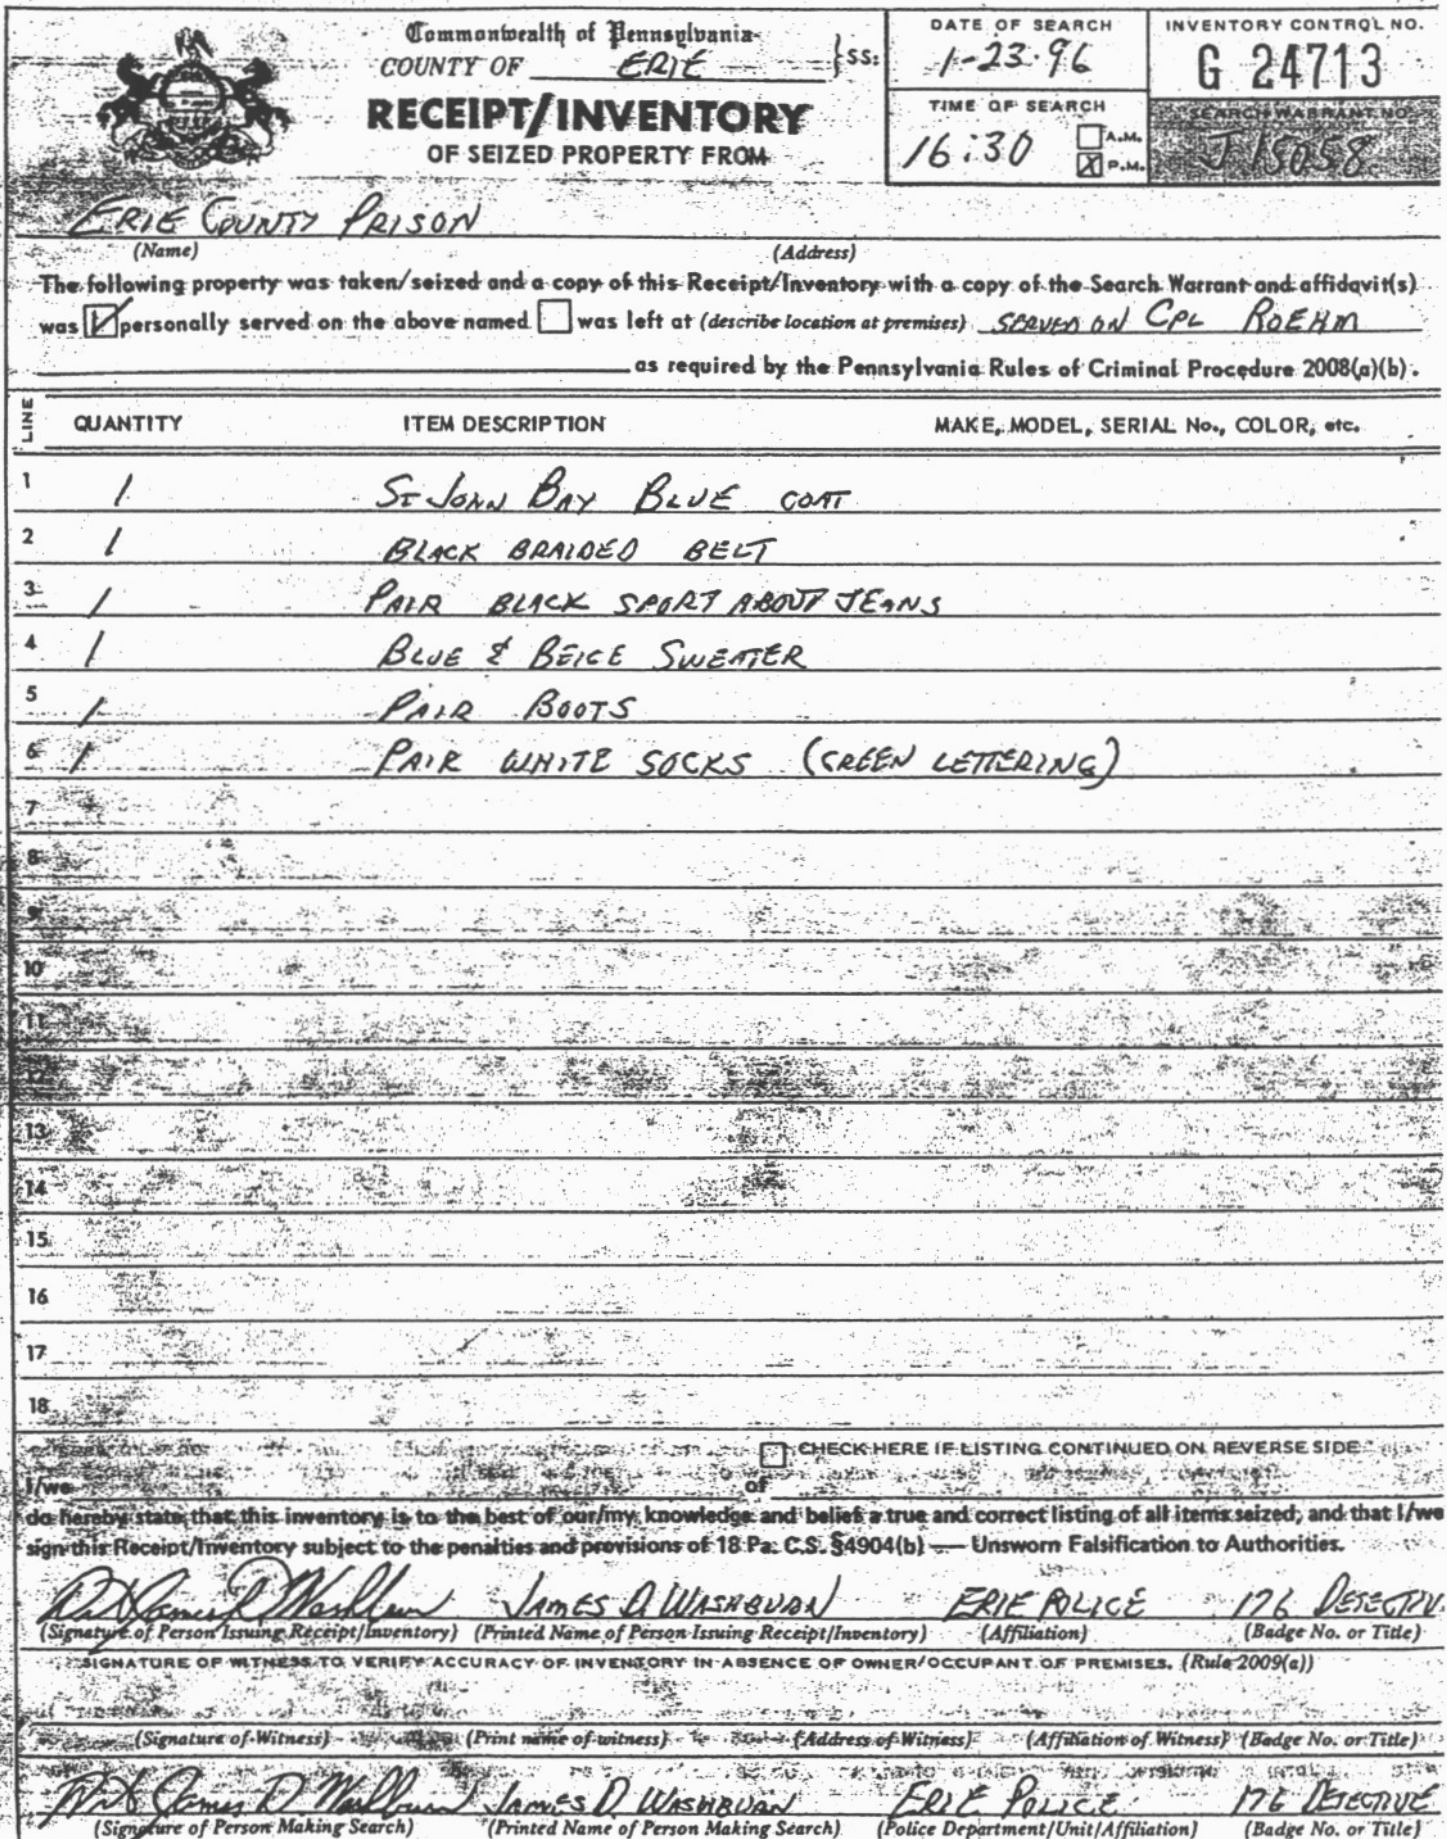 Commonwealth of Pennsylvania
COUNTY OF ERIE }SS:
RECEIPT/INVENTORY
OF SEIZED PROPERTY FROM
DATE OF SEARCH
1-23-96
TIME OF SEARCH
16:30 A.M.
X P.M.
INVENTORY CONTROL NO.
G 24713
SEARCH WARRANT NO.
J 15058
ERIE COUNTY PRISON
(Name) (Address)
The following property was taken/seized and a copy of this Receipt/Inventory with a copy of the Search Warrant and affidavit(s)
was personally served on the above named was left at (describe location at premises) SERVED ON CPL ROEHM
as required by the Pennsylvania Rules of Criminal Procedure 2008(a)(b).
LINE QUANTITY ITEM DESCRIPTION MAKE, MODEL, SERIAL No., COLOR, etc.
1 1 ST JOHN BAY BLUE COAT
2 1 BLACK BRAIDED BELT
3 1 PAIR BLACK SPORT ABOUT JEANS
4 1 BLUE & BEIGE SWEATER
5 1 PAIR BOOTS
6 1 PAIR WHITE SOCKS (GREEN LETTERING)
7
8
9
10
11
12
13
14
15
16
17
18
CHECK HERE IF LISTING CONTINUED ON REVERSE SIDE
I/we of
do hereby state that this inventory is to the best of our/my knowledge and belief a true and correct listing of all items seized, and that I/we
sign this Receipt/Inventory subject to the penalties and provisions of 18 Pa. C.S. §4904(b) — Unsworn Falsification to Authorities.
Det James D. Washburn JAMES D. WASHBURN ERIE POLICE 176 DETECTIV
(Signature of Person Issuing Receipt/Inventory) (Printed Name of Person Issuing Receipt/Inventory) (Affiliation) (Badge No. or Title)
SIGNATURE OF WITNESS TO VERIFY ACCURACY OF INVENTORY IN ABSENCE OF OWNER/OCCUPANT OF PREMISES. (Rule 2009(a))
(Signature of Witness) (Print name of witness) (Address of Witness) (Affiliation of Witness) (Badge No. or Title)
Det James D. Washburn JAMES D. WASHBURN ERIE POLICE 176 DETECTIVE
(Signature of Person Making Search) (Printed Name of Person Making Search) (Police Department/Unit/Affiliation) (Badge No. or Title)